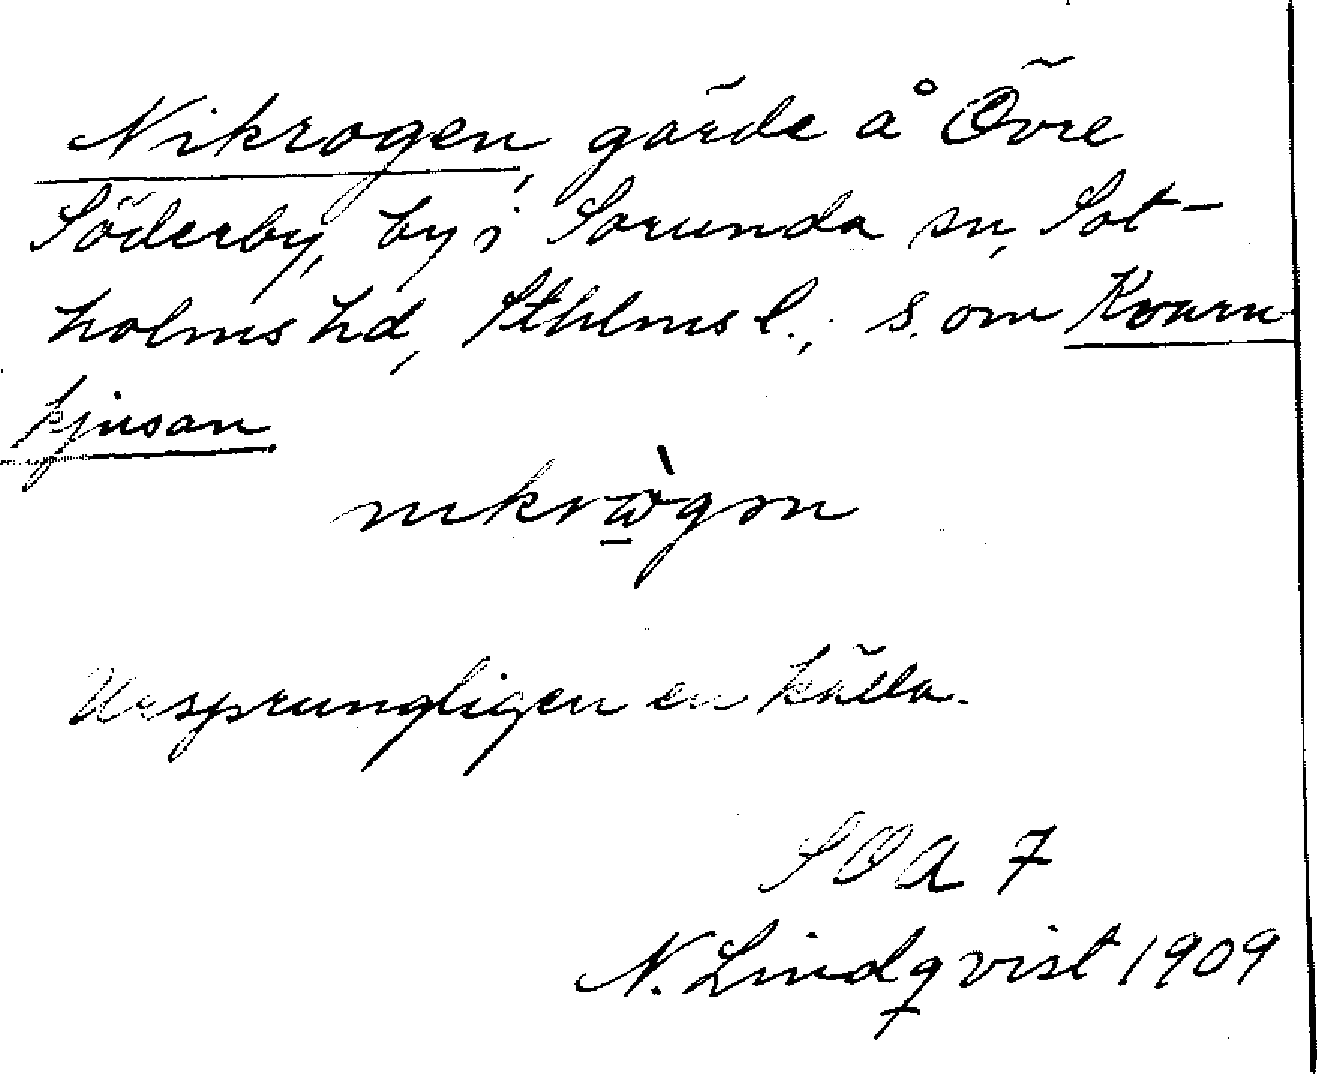 Nikrogen, gärde å Övre
Söderby, by i Sorunda sn, Sot-
holms hd, Sthlms l.; s. om Kvarn
kjusan
Ursprungligen en källa.
SOA 7
N. Lindqvist 1909